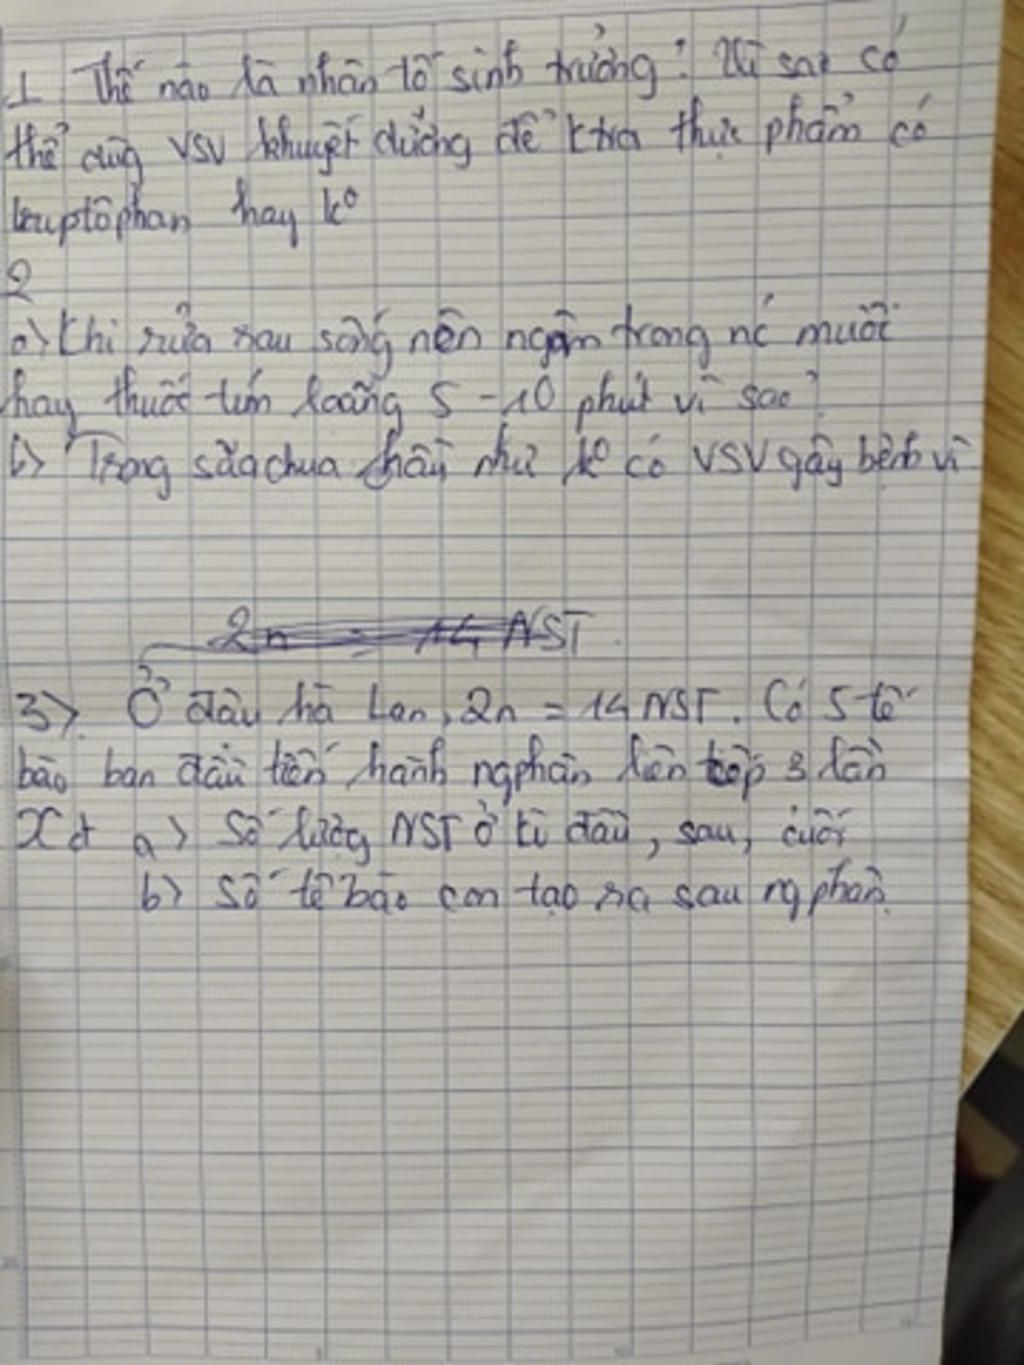 1 Thế nào là nhân tố sinh trưởng? Vì sao có
thể dùg VSV khuyết dưỡng để ktra thực phẩm có
truptôphan hay k°
2
a> Khi rửa rau sống nên ngâm trong nc muối
hay thuốc tím loãng 5 - 10 phút vì sao?
b> Trong sữa chua hầu như k° có VSV gây bệnh vì
2n = 14 NST
3> Ở đậu hà Lan, 2n = 14 NST. Có 5 tế
bào ban đầu tiến hành ng phân liên tiếp 3 lần
Xđ a> Số lượng NST ở kì đầu, sau, cuối
b> Số tế bào con tạo ra sau ng phân.